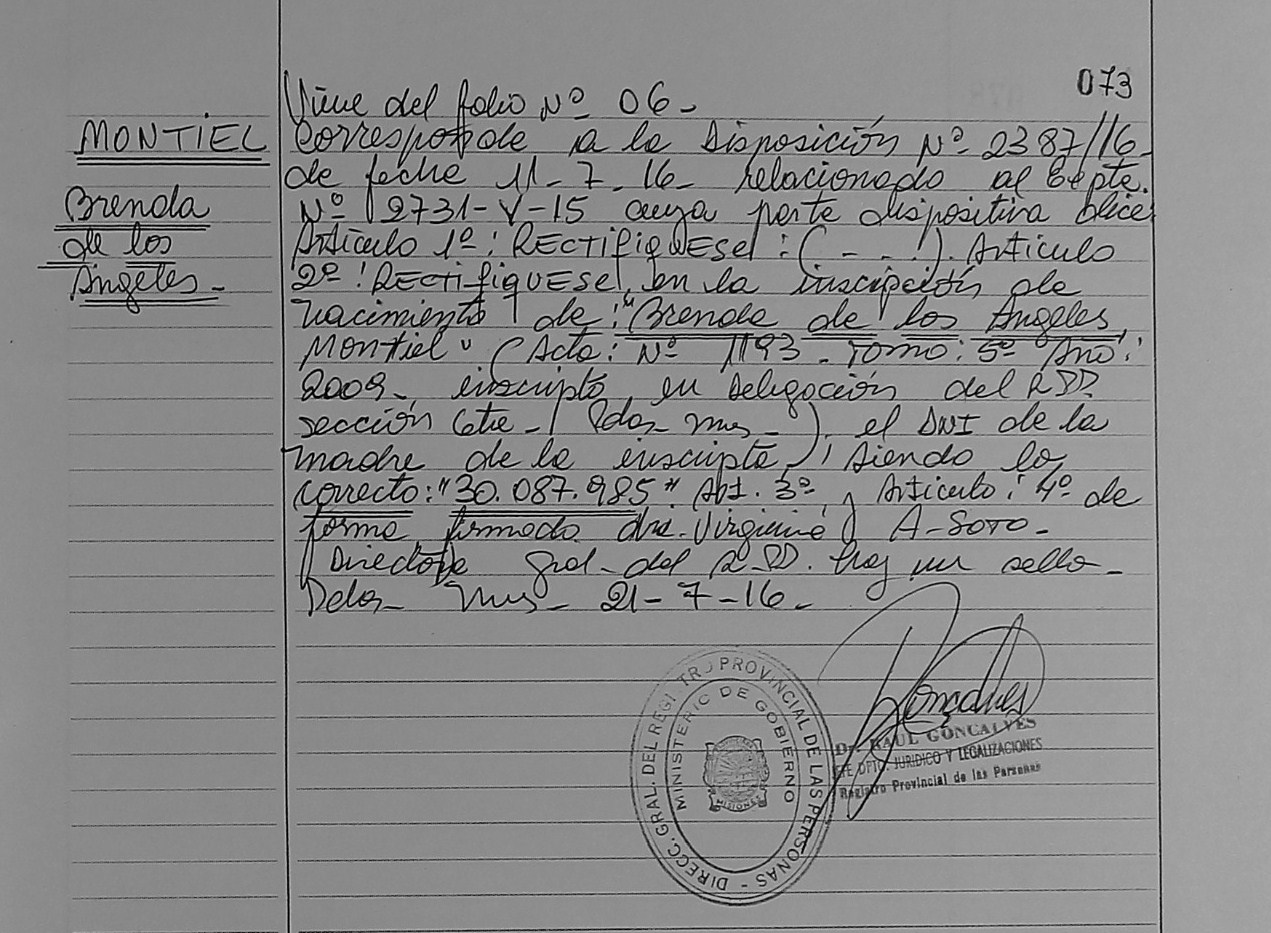 073
Viene del folio Nº 06-
MONTIEL
Brenda
de los
Angeles-
Corresponde a la Disposición Nº 2387/16-
de fecha 11-7-16- relacionado al Expte.
Nº 2731-V-15 cuya parte dispositiva dice:
Artículo 1º: RECTIFIQUESE: (- - -). Artículo
2º: RECTIFIQUESE, en la inscripción de
nacimiento de: "Brenda de los Angeles
Montiel" (Acta: Nº 1193- Tomo: 5º Año:
2009- inscripta en Delegación del RPP.
sección 6ta- Pdas- Mnes-), el DNI de la
madre de la inscripta, siendo lo
correcto: "30.087.985" Art. 3º y Artículo: 4º de
forma firmado dra. Virginia A-Soto-
Directora Gral- del R.PP. hay un sello-
Pdas- Mnes- 21-7-16-
Goncalves
DIRECC. GRAL. DEL REGISTRO PROVINCIAL DE LAS PERSONAS -
MINISTERIO DE GOBIERNO
MISIONES
Dr. RAUL GONCALVES
JEFE DPTO. JURIDICO Y LEGALIZACIONES
Registro Provincial de las Personas